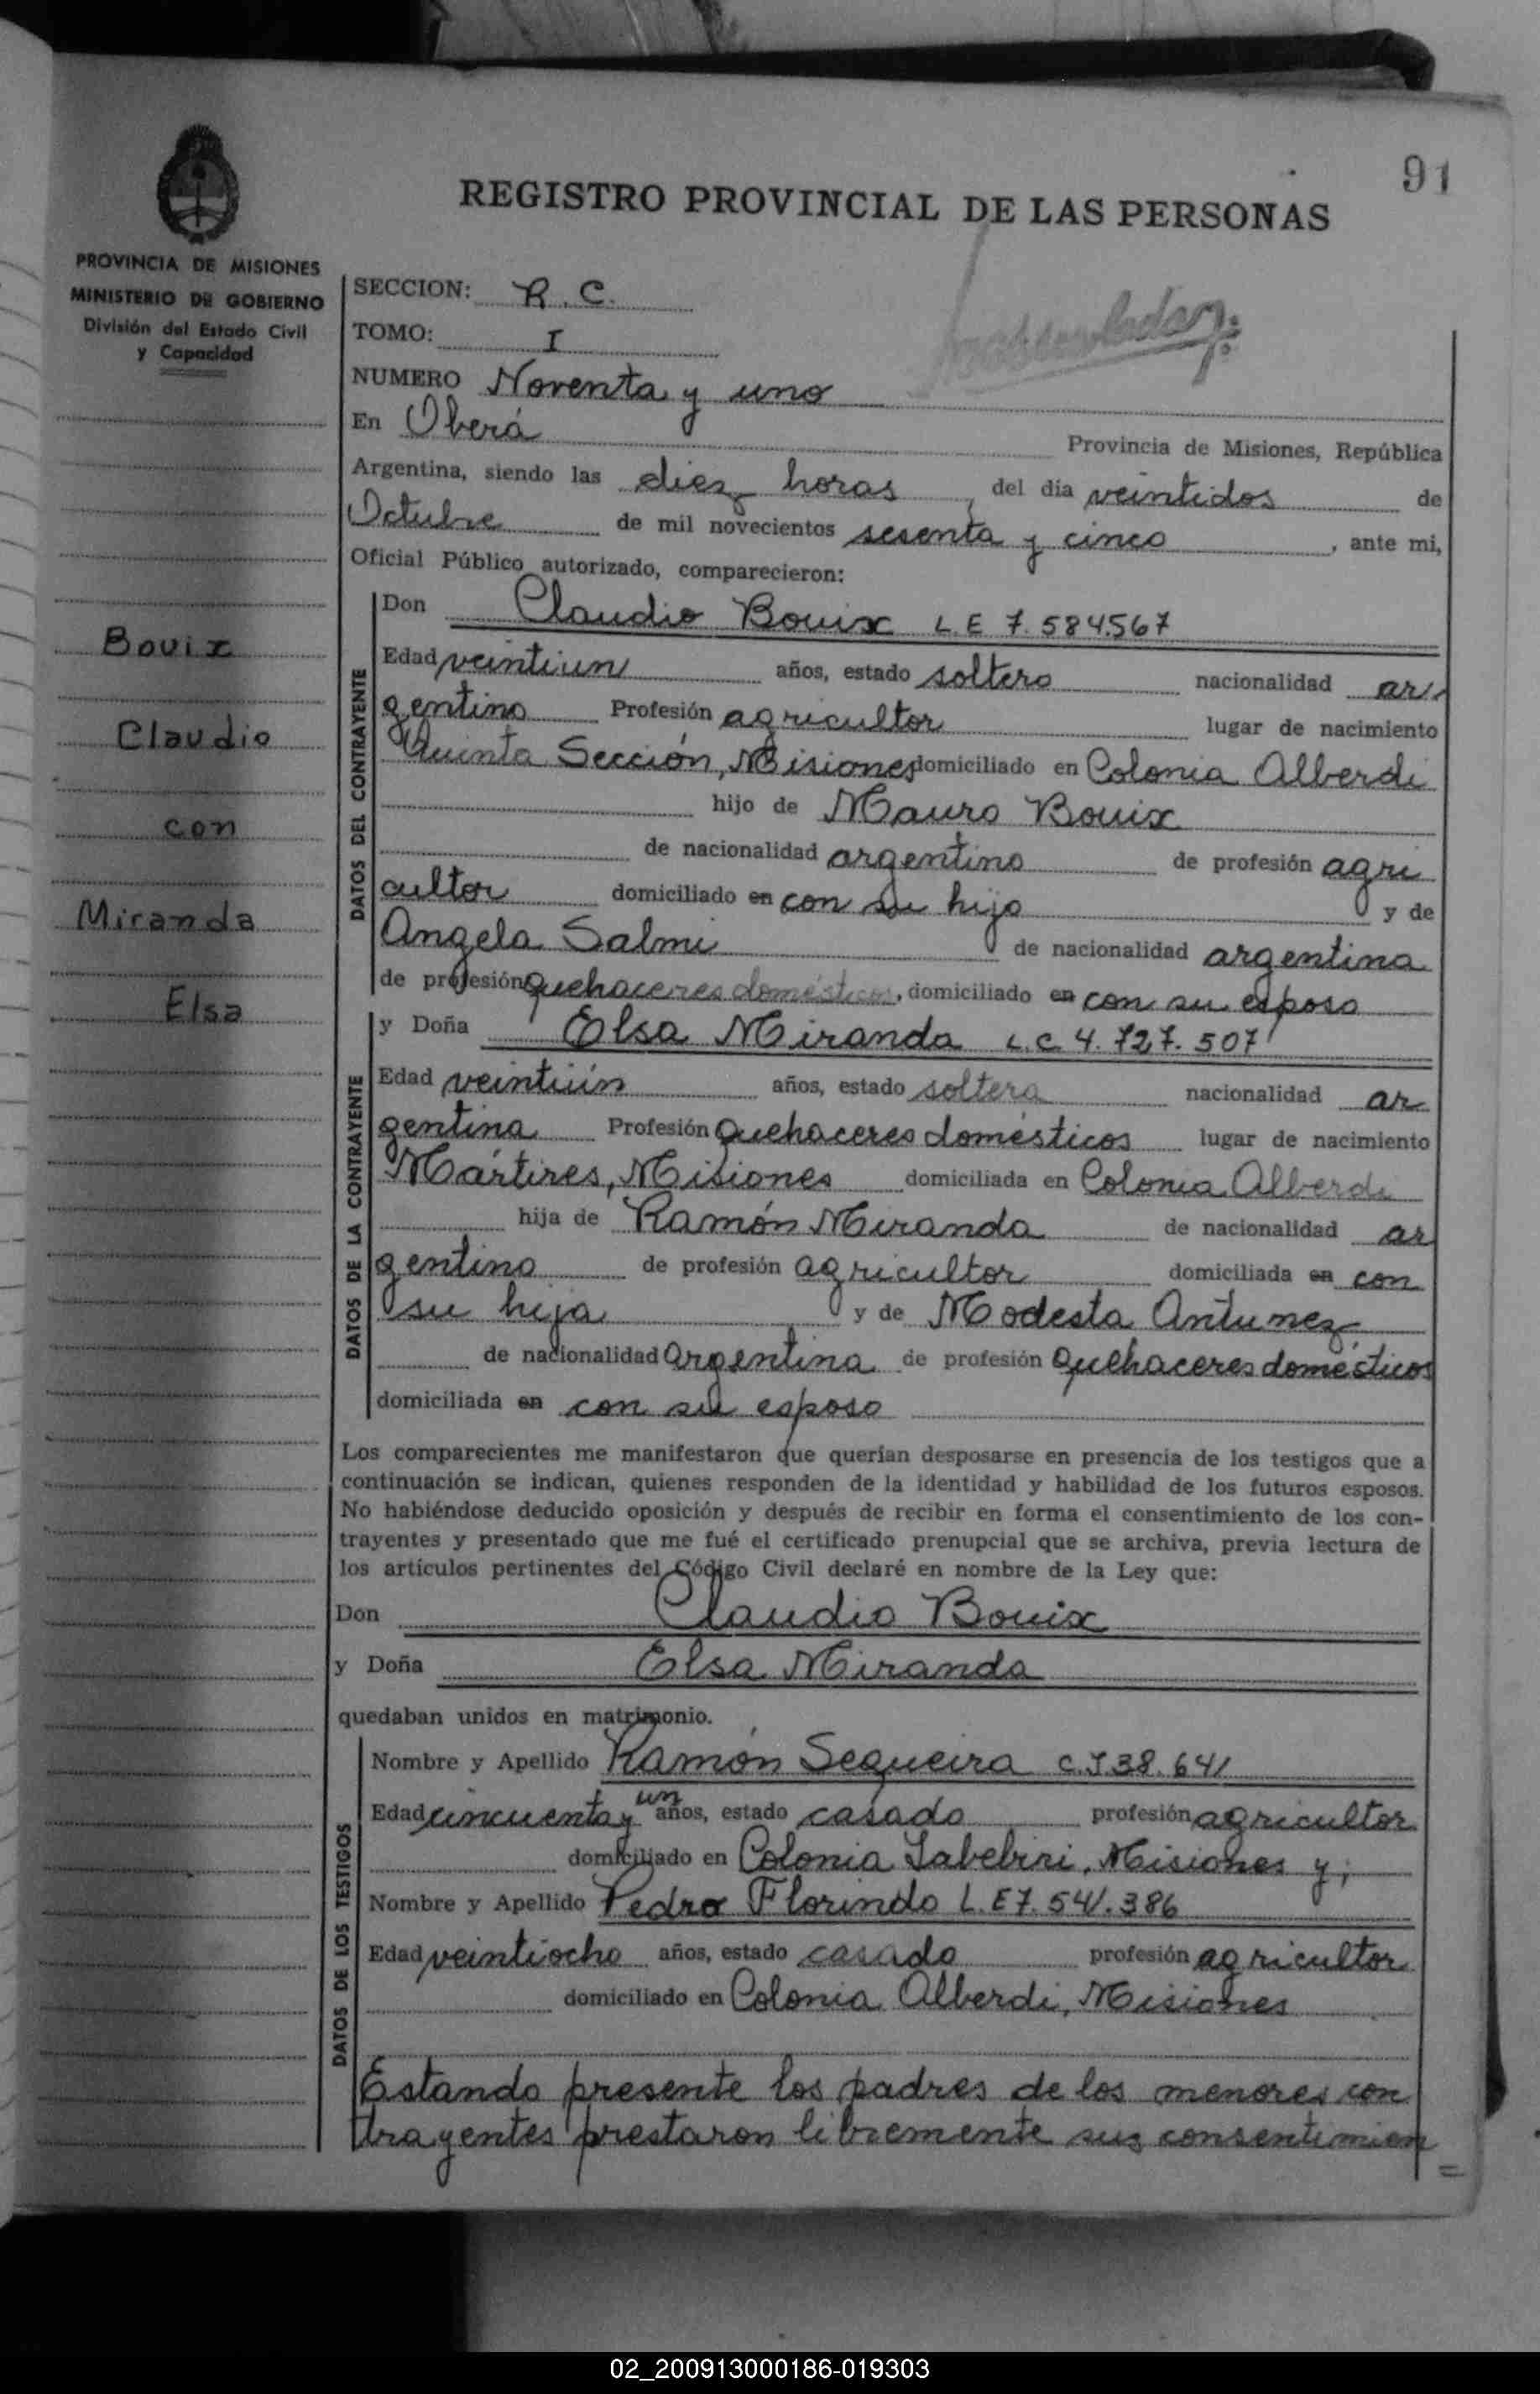 91
REGISTRO PROVINCIAL DE LAS PERSONAS
PROVINCIA DE MISIONES
MINISTERIO DE GOBIERNO
División del Estado Civil
y Capacidad
Bouix
Claudio
con
Miranda
Elsa
SECCION: R. C.
TOMO: I
NUMERO Noventa y uno
En Oberá Provincia de Misiones, República
Argentina, siendo las diez horas, del día veintidos de
Octubre de mil novecientos sesenta y cinco, ante mi,
Oficial Público autorizado, comparecieron:
DATOS DEL CONTRAYENTE
Don Claudio Bouix L.E 7.584.567
Edad veintiun años, estado soltero nacionalidad ar
gentino Profesión agricultor lugar de nacimiento
Quinta Sección, Misiones domiciliado en Colonia Alberdi
hijo de Mauro Bouix
de nacionalidad argentino de profesión agri
cultor domiciliado en con su hijo y de
Angela Salmi de nacionalidad argentina
de profesión Quehaceres domésticos, domiciliado en con su esposo
DATOS DE LA CONTRAYENTE
y Doña Elsa Miranda L.C. 4.727.507
Edad veintiún años, estado soltera nacionalidad ar
gentina Profesión Quehaceres domésticos lugar de nacimiento
Mártires, Misiones domiciliada en Colonia Alberdi
hija de Ramón Miranda de nacionalidad ar
gentino de profesión agricultor domiciliada en con
su hija y de Modesta Antunez
de nacionalidad argentina de profesión Quehaceres domésticos
domiciliada en con su esposo
Los comparecientes me manifestaron que querían desposarse en presencia de los testigos que a
continuación se indican, quienes responden de la identidad y habilidad de los futuros esposos.
No habiéndose deducido oposición y después de recibir en forma el consentimiento de los con-
trayentes y presentado que me fué el certificado prenupcial que se archiva, previa lectura de
los artículos pertinentes del Código Civil declaré en nombre de la Ley que:
Don Claudio Bouix
y Doña Elsa Miranda
quedaban unidos en matrimonio.
DATOS DE LOS TESTIGOS
Nombre y Apellido Ramón Sequeira C.I 38.641
Edad cincuenta y un años, estado casado profesión agricultor
domiciliado en Colonia Yabebiri, Misiones y;
Nombre y Apellido Pedro Florindo L.E 7.541.386
Edad veintiocho años, estado casado profesión agricultor
domiciliado en Colonia Alberdi, Misiones
Estando presente los padres de los menores con
trayentes prestaron libremente sus consentimien
=
02_200913000186-019303